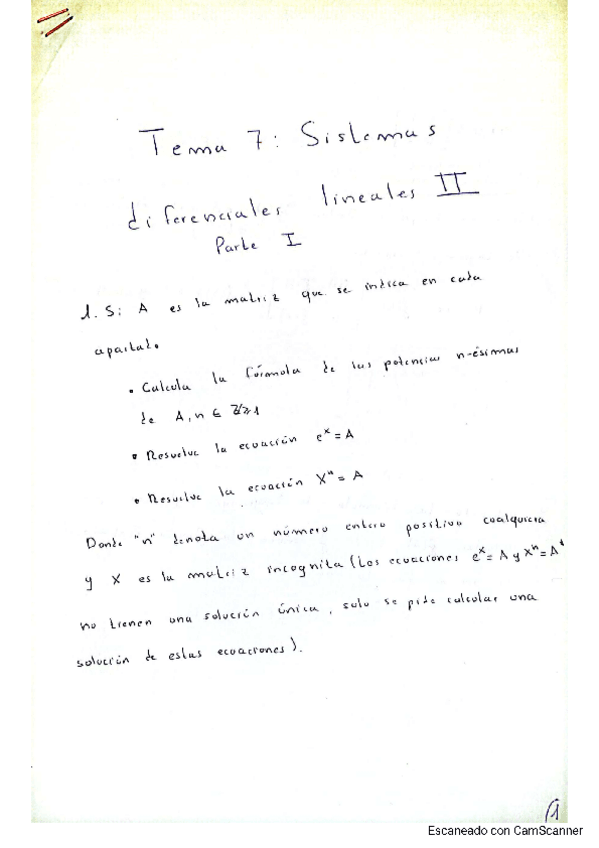 Tema 7: Sistemas
diferenciales lineales II
Parte I
1. Si A es la matriz que se indica en cada
apartado
• Calcula la fórmula de las potencias n-ésimas
de A, n ∈ ℤ≥1
• Resuelve la ecuación e^x = A
• Resuelve la ecuación X^n = A
Donde "n" denota un número entero positivo cualquiera
y X es la matriz incognita (Los ecuaciones e^x = A y X^n = A
no tienen una solución única, solo se pide calcular una
solución de estas ecuaciones).
1
Escaneado con CamScanner